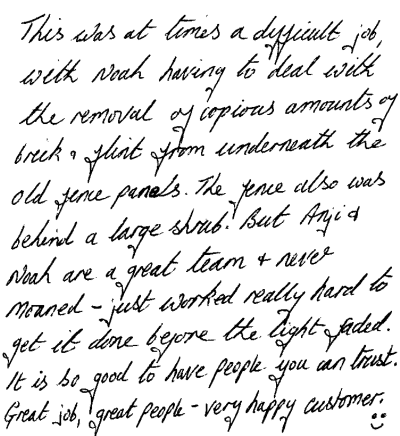 This was at times a difficult job,
with Noah having to deal with
the removal of copious amounts of
brick & flint from underneath the
old fence panels. The fence also was
behind a large shrub. But Anji &
Noah are a great team & never
moaned - just worked really hard to
get it done before the light faded.
It is so good to have people you can trust.
Great job, great people - very happy customer.
☺